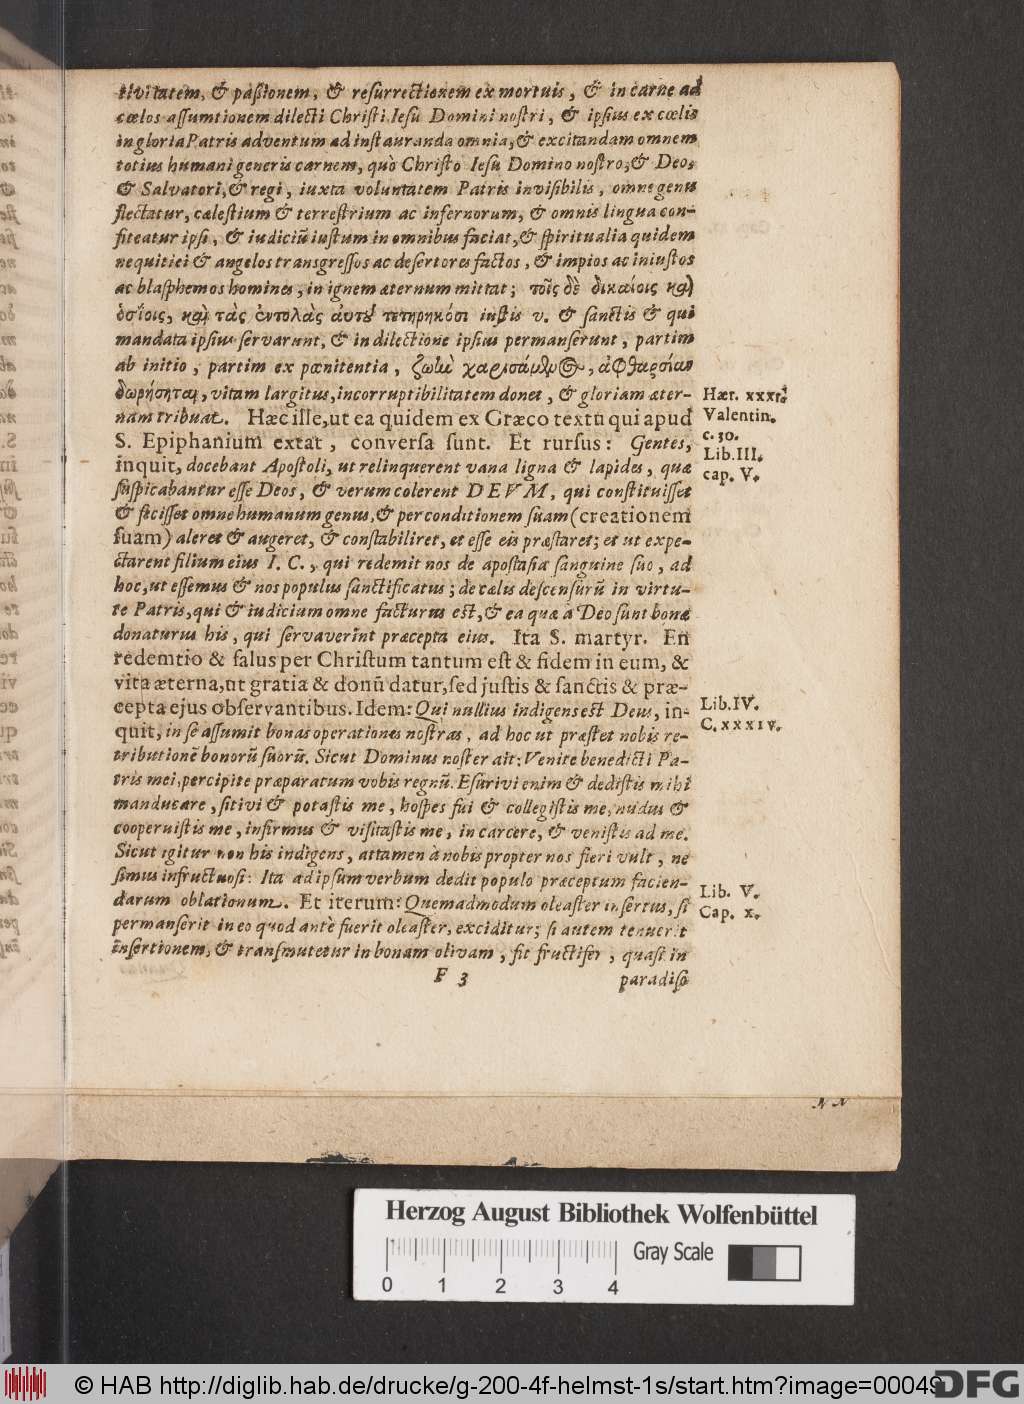 tivitatem, & paßionem, & resurrectionem ex mortuis, & in carne ad
cœlos assumtionem dilecti Christi Iesu Domini nostri, & ipsius ex cœlis
in gloria Patris adventum ad instauranda omnia, & excitandam omnem
totius humani generis carnem, quò Christo Iesu Domino nostro, & Deo,
& Salvatori, & regi, iuxta voluntatem Patris invisibilis, omne genu
flectatur, cælestium & terrestrium ac infernorum, & omnis lingua con-
fiteatur ipsi, & iudiciũ iustum in omnibus faciat, & spiritualia quidem
nequitiei & angelos transgressos ac desertores factos, & impios ac iniustos
ac blasphemos homines, in ignem æternum mittat; τοῖς δὲ δικαίοις καὶ
ὁσίοις, καὶ τὰς ἐντολὰς ἀυτοῦ τετηρηκόσι iustis v. & sanctis & qui
mandata ipsius servarunt, & in dilectione ipsius permanserunt, partim
ab initio, partim ex pœnitentia, ζωὴν χαρισάμενος, ἀφθαρσίαν
δωρήσηται, vitam largitus, incorruptibilitatem donet, & gloriam æter-
nam tribuat. Hæc ille, ut ea quidem ex Græco textu qui apud
S. Epiphanium extat, conversa sunt. Et rursus: Gentes,
inquit, docebant Apostoli, ut relinquerent vana ligna & lapides, quæ
suspicabantur esse Deos, & verum colerent DEVM, qui constituisset
& fecisset omne humanum genus, & per conditionem suam (creationem
suam) aleret & augeret, & constabiliret, et esse eis præstaret; et ut expe-
ctarent filium eius I. C., qui redemit nos de apostasia sanguine suo, ad
hoc, ut essemus & nos populus sanctificatus; de cælis descensurũ in virtu-
te Patris, qui & iudicium omne facturus est, & ea quæ à Deo sunt bona
donaturus his, qui servaverint præcepta eius. Ita S. martyr. En
redemtio & salus per Christum tantum est & fidem in eum, &
vita æterna, ut gratia & donũ datur, sed justis & sanctis & præ-
cepta ejus observantibus. Idem: Qui nullius indigens est Deus, in-
quit, in se assumit bonas operationes nostras, ad hoc ut præstet nobis re-
tributionẽ bonorũ suorũ. Sicut Dominus noster ait: Venite benedicti Pa-
tris mei, percipite præparatum vobis regnũ. Esurivi enim & dedistis mihi
manducare, sitivi & potastis me, hospes fui & collegistis me, nudus &
cooperuistis me, infirmus & visitastis me, in carcere, & venistis ad me.
Sicut igitur non his indigens, attamen à nobis propter nos fieri vult, ne
simus infructuosi: Ita ad ipsum verbum dedit populo præceptum facien-
darum oblationum. Et iterum: Quemadmodum oleaster insertus, si
permanserit in eo quod antè fuerit oleaster, exciditur; si autem tenuerit
insertionem, & transmutetur in bonam olivam, fit fructifer, quasi in
F 3 paradiso
Hær. xxxi.
Valentin.
c. 30.
Lib. III.
cap. V.
Lib. IV.
C. xxxiv.
Lib. V.
Cap. x.
Herzog August Bibliothek Wolfenbüttel
Gray Scale
0 1 2 3 4
© HAB http://diglib.hab.de/drucke/g-200-4f-helmst-1s/start.htm?image=00049
DFG